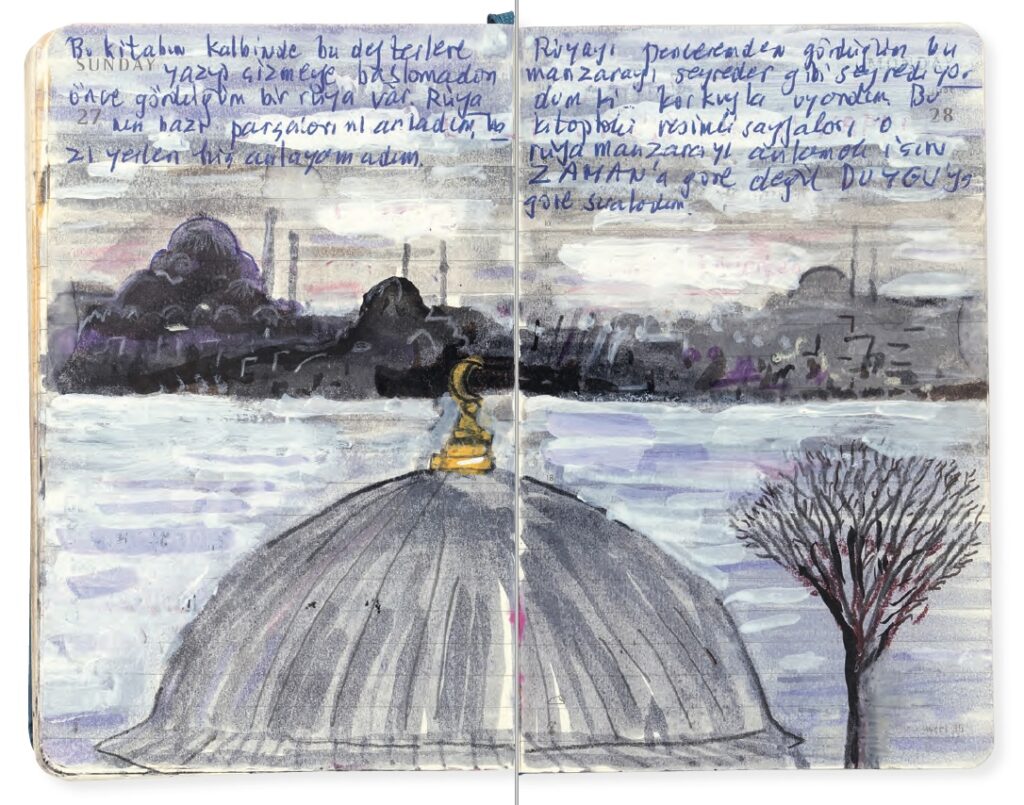 Bu kitabın kalbinde bu defterlere
SUNDAY
yazıp çizmeye başlamadan
önce gördüğüm bir rüya var. Rüya
27
nın bazı parçalarını anladım, ba
zı yerleri hiç anlayamadım.
Rüyayı pencereden gördüğüm bu
manzarayı seyreder gibi seyrediyor
dum ki korkuyla uyandım. Bu
28
kitaptaki resimli sayfaları o
rüya manzarayı anlamak için
ZAMAN'a göre değil DUYGU'ya
göre sıraladım.